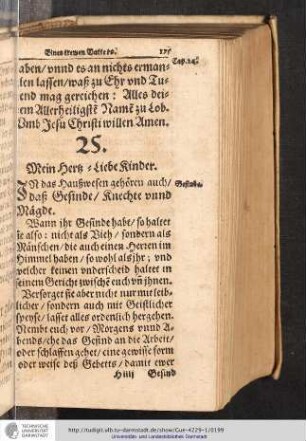 Eines trewen Vatters. 175
Cap. 24.
aben/ vnnd es an nichts erman-
len lassen/ waß zu Ehr vnd Tu-
tend mag gereichen: Alles dei-
em Allerheiligste Namē zu Lob.
Vmb Jesu Christi willen Amen.
25.
Mein Hertz-Liebe Kinder.
IN das Haußwesen gehören auch/
daß Gesinde/ Knechte vnnd
Mägde.
Wann jhr Gesinde habt/ so haltet
sie also: nicht als Vieh/ sondern als
Mänschen/ die auch einen Herren im
Himmel haben/ so wohl als jhr; vnd
welcher keinen vnderscheid haltet in
seinem Gericht zwischē euch vñ jhnen.
Versorget sie aber nicht nur mit leib-
licher/ sondern auch mit Geistlicher
speyse/ lasset alles ordenlich hergehen.
Nembt euch vor/ Morgens vnnd A-
bends/ ehe das Gesind an die Arbeit/
oder schlaffen gehet/ eine gewisse form
oder weise deß Gebetts/ damit ewer
H iiij Gesind
http://tudigit.ulb.tu-darmstadt.de/show/Gue-4229-1/0199
Universitäts- und Landesbibliothek Darmstadt
TECHNISCHE
UNIVERSITÄT
DARMSTADT